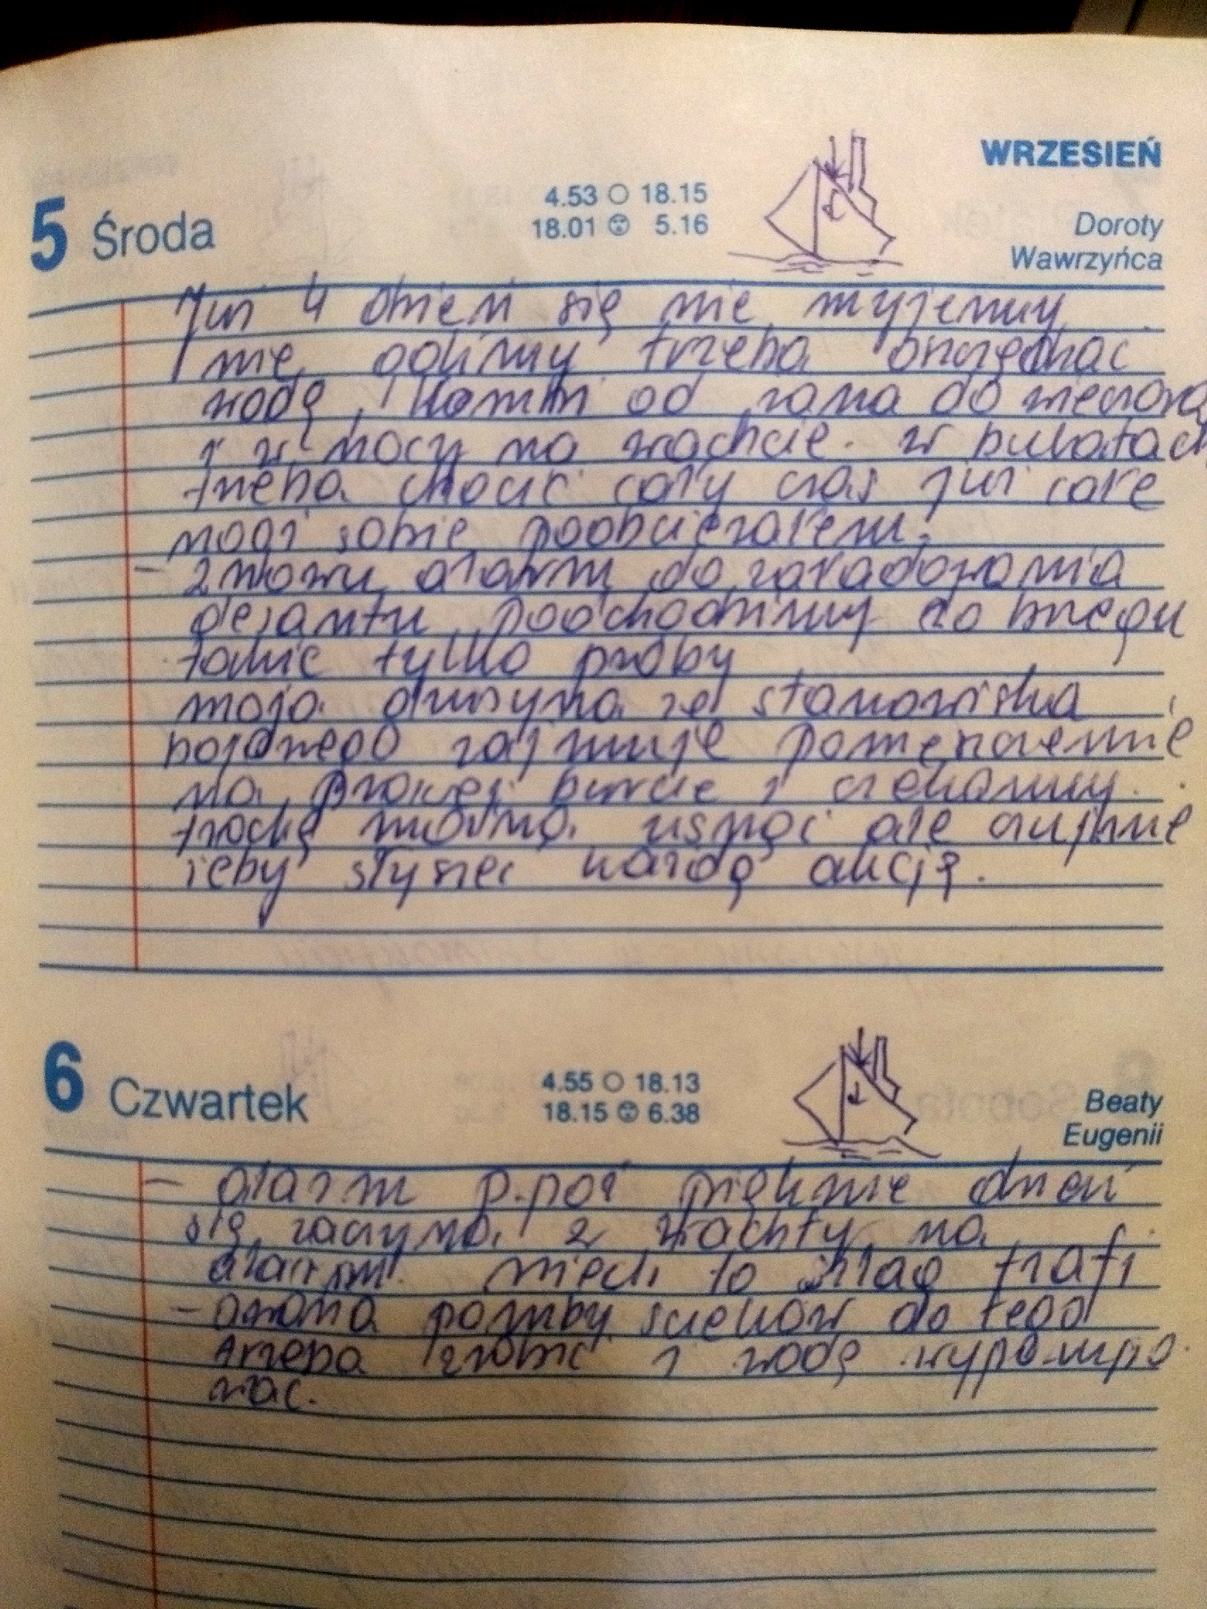 WRZESIEŃ
5 Środa
4.53 18.15
18.01 5.16
Doroty
Wawrzyńca
Już 4 dzień się nie myjemy
nie golimy trzeba oszczędzać
wodę, kambuz od rana do wieczora
i w nocy na wachcie. w butach
trzeba chodzić cały czas już całe
nogi sobie poobcierałem.
- znowu alarm do załadowania
desantu podchodzimy do brzegu
takie tylko próby
moja drużyna ze stanowiska
bojowego zajmuje pomieszczenie
na prawej burcie i czekamy.
trochę można usnąć ale czujnie
żeby słyszeć każdą akcję.
6 Czwartek
4.55 18.13
18.15 6.38
Beaty
Eugenii
- alarm p.poż pięknie dzień
się zaczyna z wachty na
alarm. niech to szlag trafi
- awaria pompy ścieków do tego
trzeba zrobić i wodę wypompo
wać.